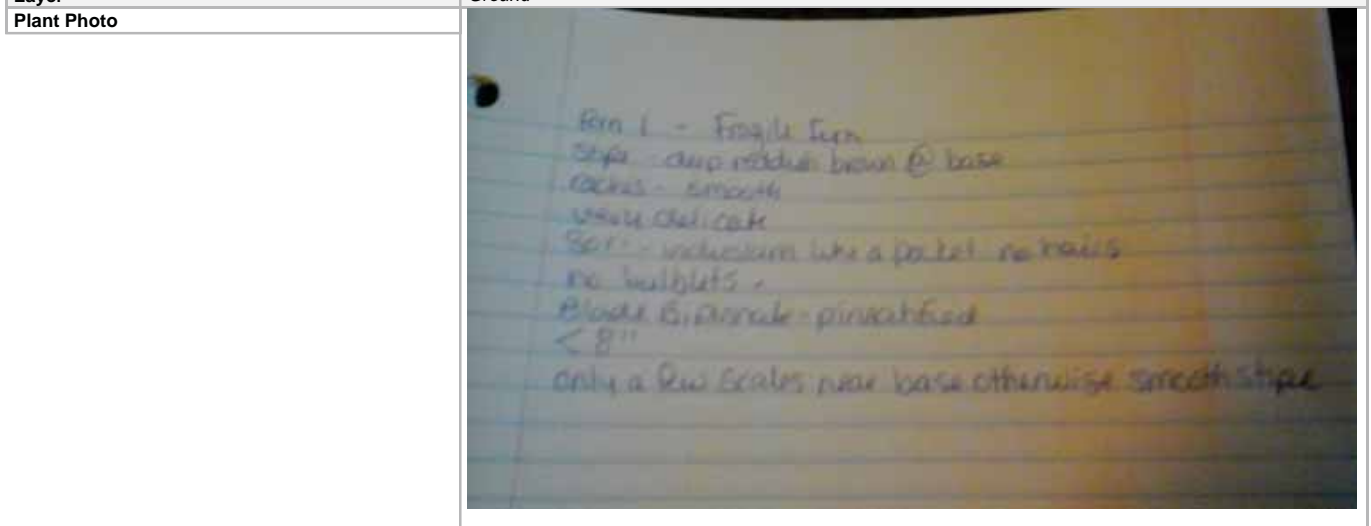 Layer Ground
Plant Photo
Fern 1 - Fragile Fern
Stipe - deep reddish brown @ base
rachis - smooth
delicate
Sori - indusium like a pocket no hairs
no bulblets.
Blade Bipinnate-pinnatifid
< 8"
only a few scales near base otherwise smooth stipe